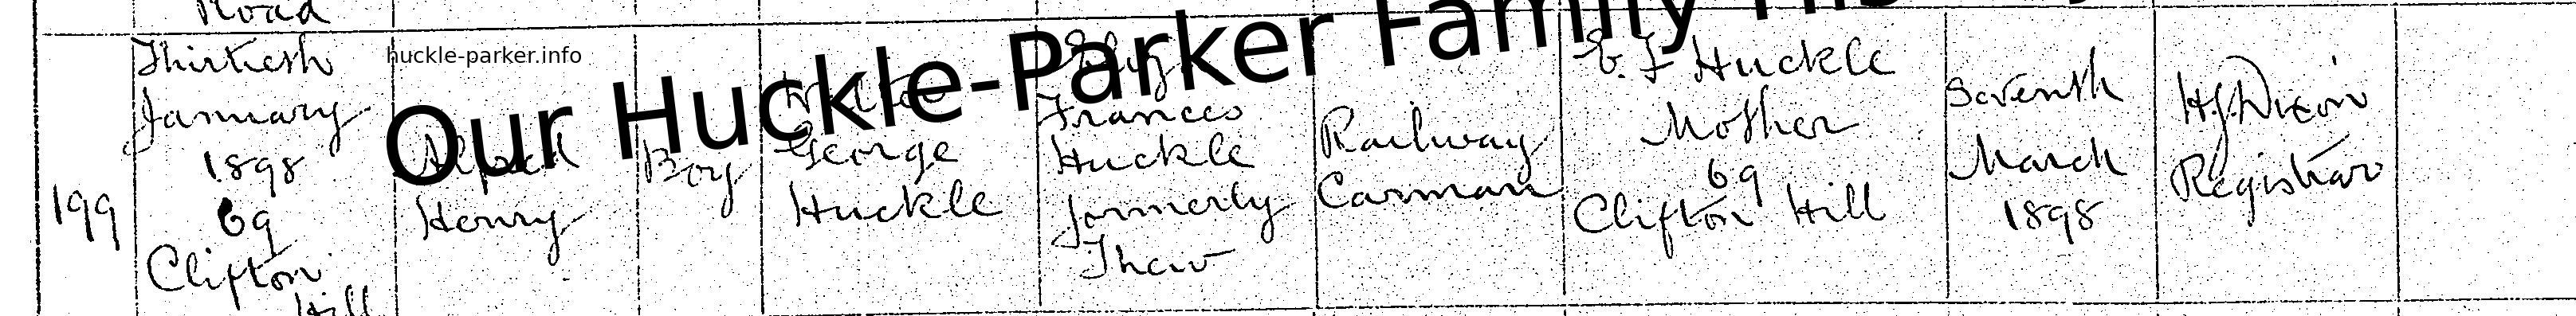 Road
199
Thirtieth
January
1898
69
Clifton
Hill
huckle-parker.info
Our Huckle-Parker Family
Alfred
Henry
Boy
George
Huckle
Frances
Huckle
formerly
Thew
Railway
Carman
E. F Huckle
Mother
69
Clifton Hill
Seventh
March
1898
H.J. Dixon
Registrar